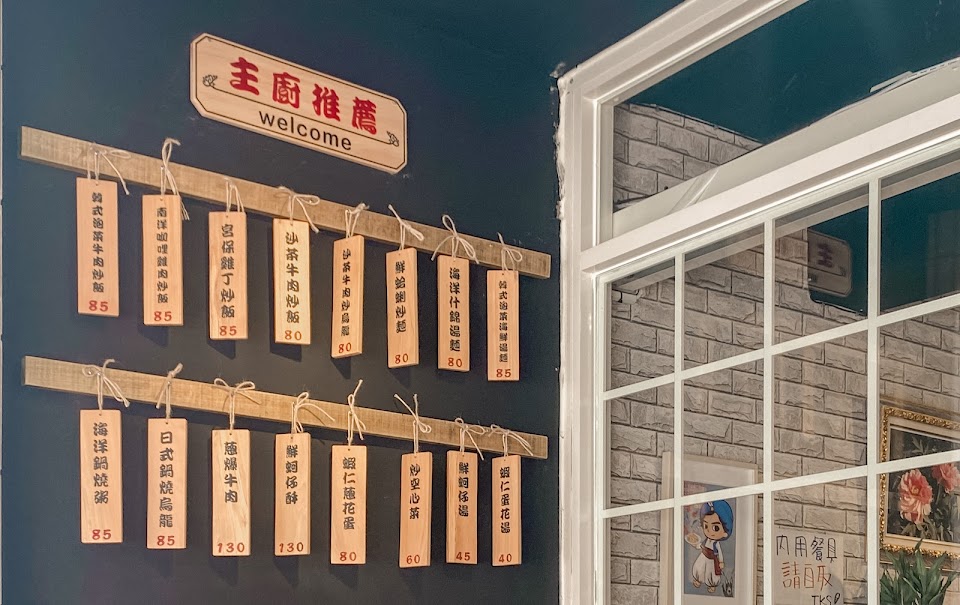 主廚推薦
welcome
韓式泡菜牛肉炒飯
85
南洋咖哩雞肉炒飯
85
宮保雞丁炒飯
85
沙茶牛肉炒飯
80
沙茶牛肉炒烏龍
80
鮮蛤蜊炒麵
80
海洋什錦湯麵
80
韓式泡菜海鮮湯麵
85
海洋鍋燒粥
85
日式鍋燒烏龍
85
蔥爆牛肉
130
鮮蚵仔酥
130
蝦仁蔥花蛋
80
炒空心菜
60
鮮蚵仔湯
45
蝦仁蛋花湯
40
主
內用餐具
請自取
TKS